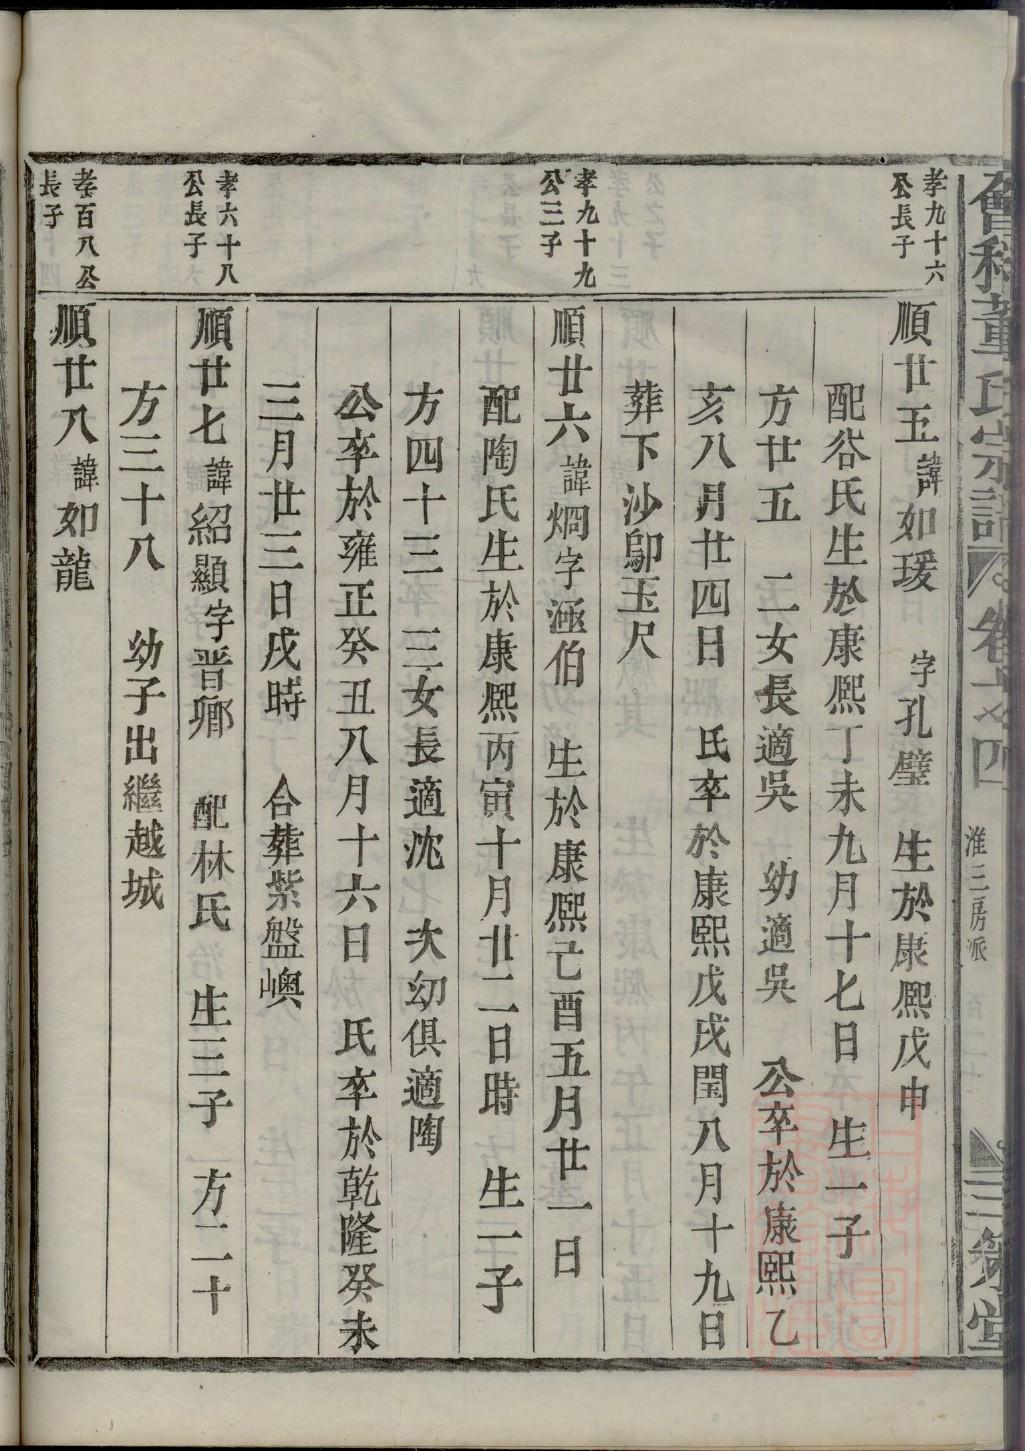 會稽董氏宗譜 卷之四 淮三房派 三策堂
孝九十六
公長子
順廿五諱如瑗 字孔璧 生於康熙戊申
配谷氏生於康熙丁未九月十七日 生一子
方廿五 二女長適吳 幼適吳 公卒於康熙乙
亥八月廿四日 氏卒於康熙戊戌閏八月十九日
葬下沙鄔玉尺
孝九十九
公三子
順廿六諱烱字涵伯 生於康熙己酉五月廿一日
配陶氏生於康熙丙寅十月廿二日時 生一子
方四十三 三女長適沈 次幼俱適陶
公卒於雍正癸丑八月十六日 氏卒於乾隆癸未
三月廿三日戌時 合葬紫盤嶼
孝六十八
公長子
順廿七諱紹顯字晋卿 配林氏 生三子 方二十
方三十八 幼子出繼越城
孝百八公
長子
順廿八諱如龍